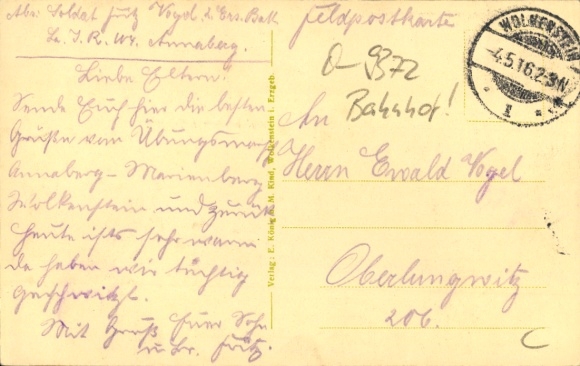 Abs: Soldat Fritz Vogel 2. Ers. Batl.
Ldst. I. R. XIX. Annaberg.
Liebe Eltern!
Sende Euch hier die besten
Grüße vom Übungsmarsch
Annaberg – Marienberg
Wolkenstein und zurück
heute ists sehr warm
da haben wir tüchtig
geschwitzt.
Mit Gruß Euer Sohn
u. Br. Fritz.
Verlag: E. König &amp; M. Kind, Wolkenstein i. Erzgeb.
Feldpostkarte
WOLKENSTEIN
-4.5.16.2-3N
D-9372
Bahnhof!
An
Herrn Ewald Vogel
Oberlungwitz
206.